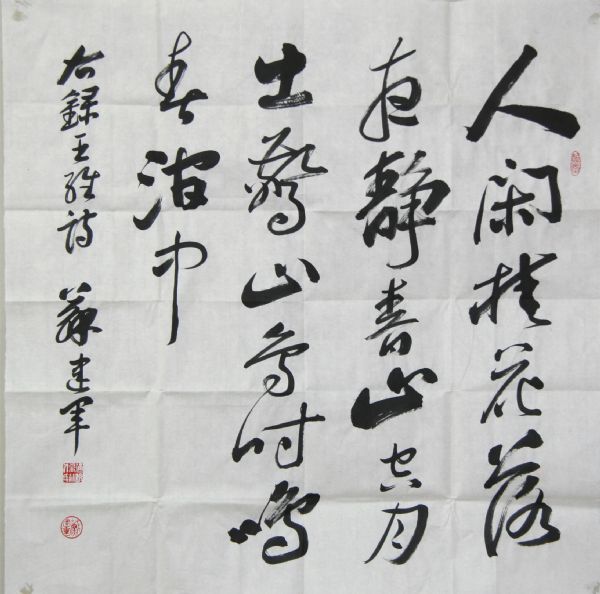 人闲桂花落
夜静春山空月
出驚山鸟时鸣
春涧中
右録王维诗 蘇建军